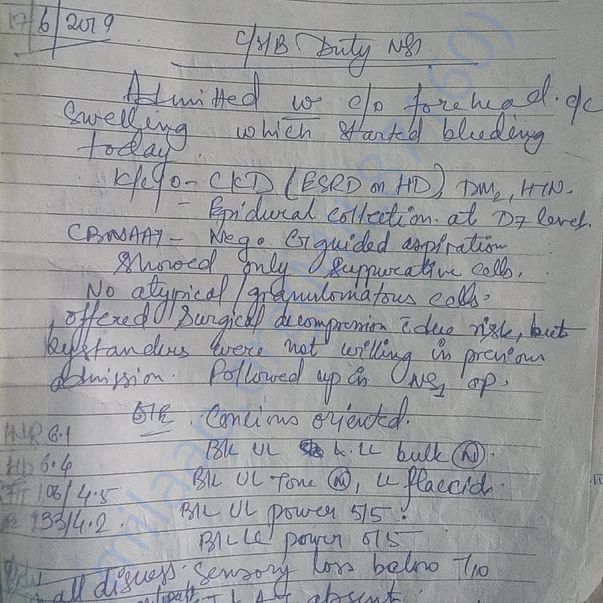 17/6/2019
C/S/B Duty NS1
Admitted w c/o forehead
swelling which started bleeding
today.
K/c/o - CKD (ESRD on HD), DM2, HTN.
- Epidural collection at D7 level.
CBNAAT - Neg. CT guided aspiration
showed only suppurative cells.
No atypical / granulomatous cells.
offered surgical decompression c due risk, but
bystanders were not willing in previous
admission. Followed up in NS1 OP.
O/E Concious oriented.
INR 6.1
B/L UL & LL bulk (N).
Hb 6.4
B/L UL tone (N), LL flaccid.
106/4.5
B/L UL power 5/5.
133/4.2
B/L LL power 0/5
sensory loss below T10
absent